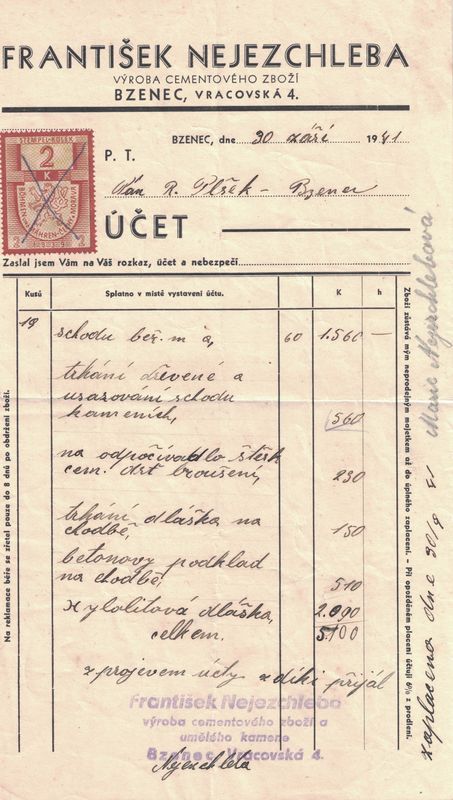 FRANTIŠEK NEJEZCHLEBA
VÝROBA CEMENTOVÉHO ZBOŽÍ
BZENEC, VRACOVSKÁ 4.
BZENEC, dne 30 září 1941
STEMPEL-KOLEK
2
K
BÖHMEN u. MÄHREN-ČECHY a MORAVA
1939
P. T.
Pan R. Plšek - Bzenec
ÚČET
Zaslal jsem Vám na Váš rozkaz, účet a nebezpečí
Kusů Splatno v místě vystavení účtu. K h
19 schodu beř. m á, 60 1.560 —
trhání dřevené a
usazování schodu
kamených, 560
na odpočívadlo
cem. drť broušení, 230
trhání dlážka na
chodbě, 150
betonovy podklad
na chodbě, 510
xylolitová dlážka, 2.090
celkem. 5.100
z projevem úcty z díki přijal
František Nejezchleba
výroba cementového zboží a
umělého kamene
Bzenec, Vracovská 4.
Nejezchleba
Na reklamace běře se zřetel pouze do 8 dnů po obdržení zboží.
Zboží zůstává mým neprodejným majetkem až do úplného zaplacení. – Při opožděném placení účtuji 6% z prodlení.
zaplaceno dne 30/9 41 Marie Nejezchlebová